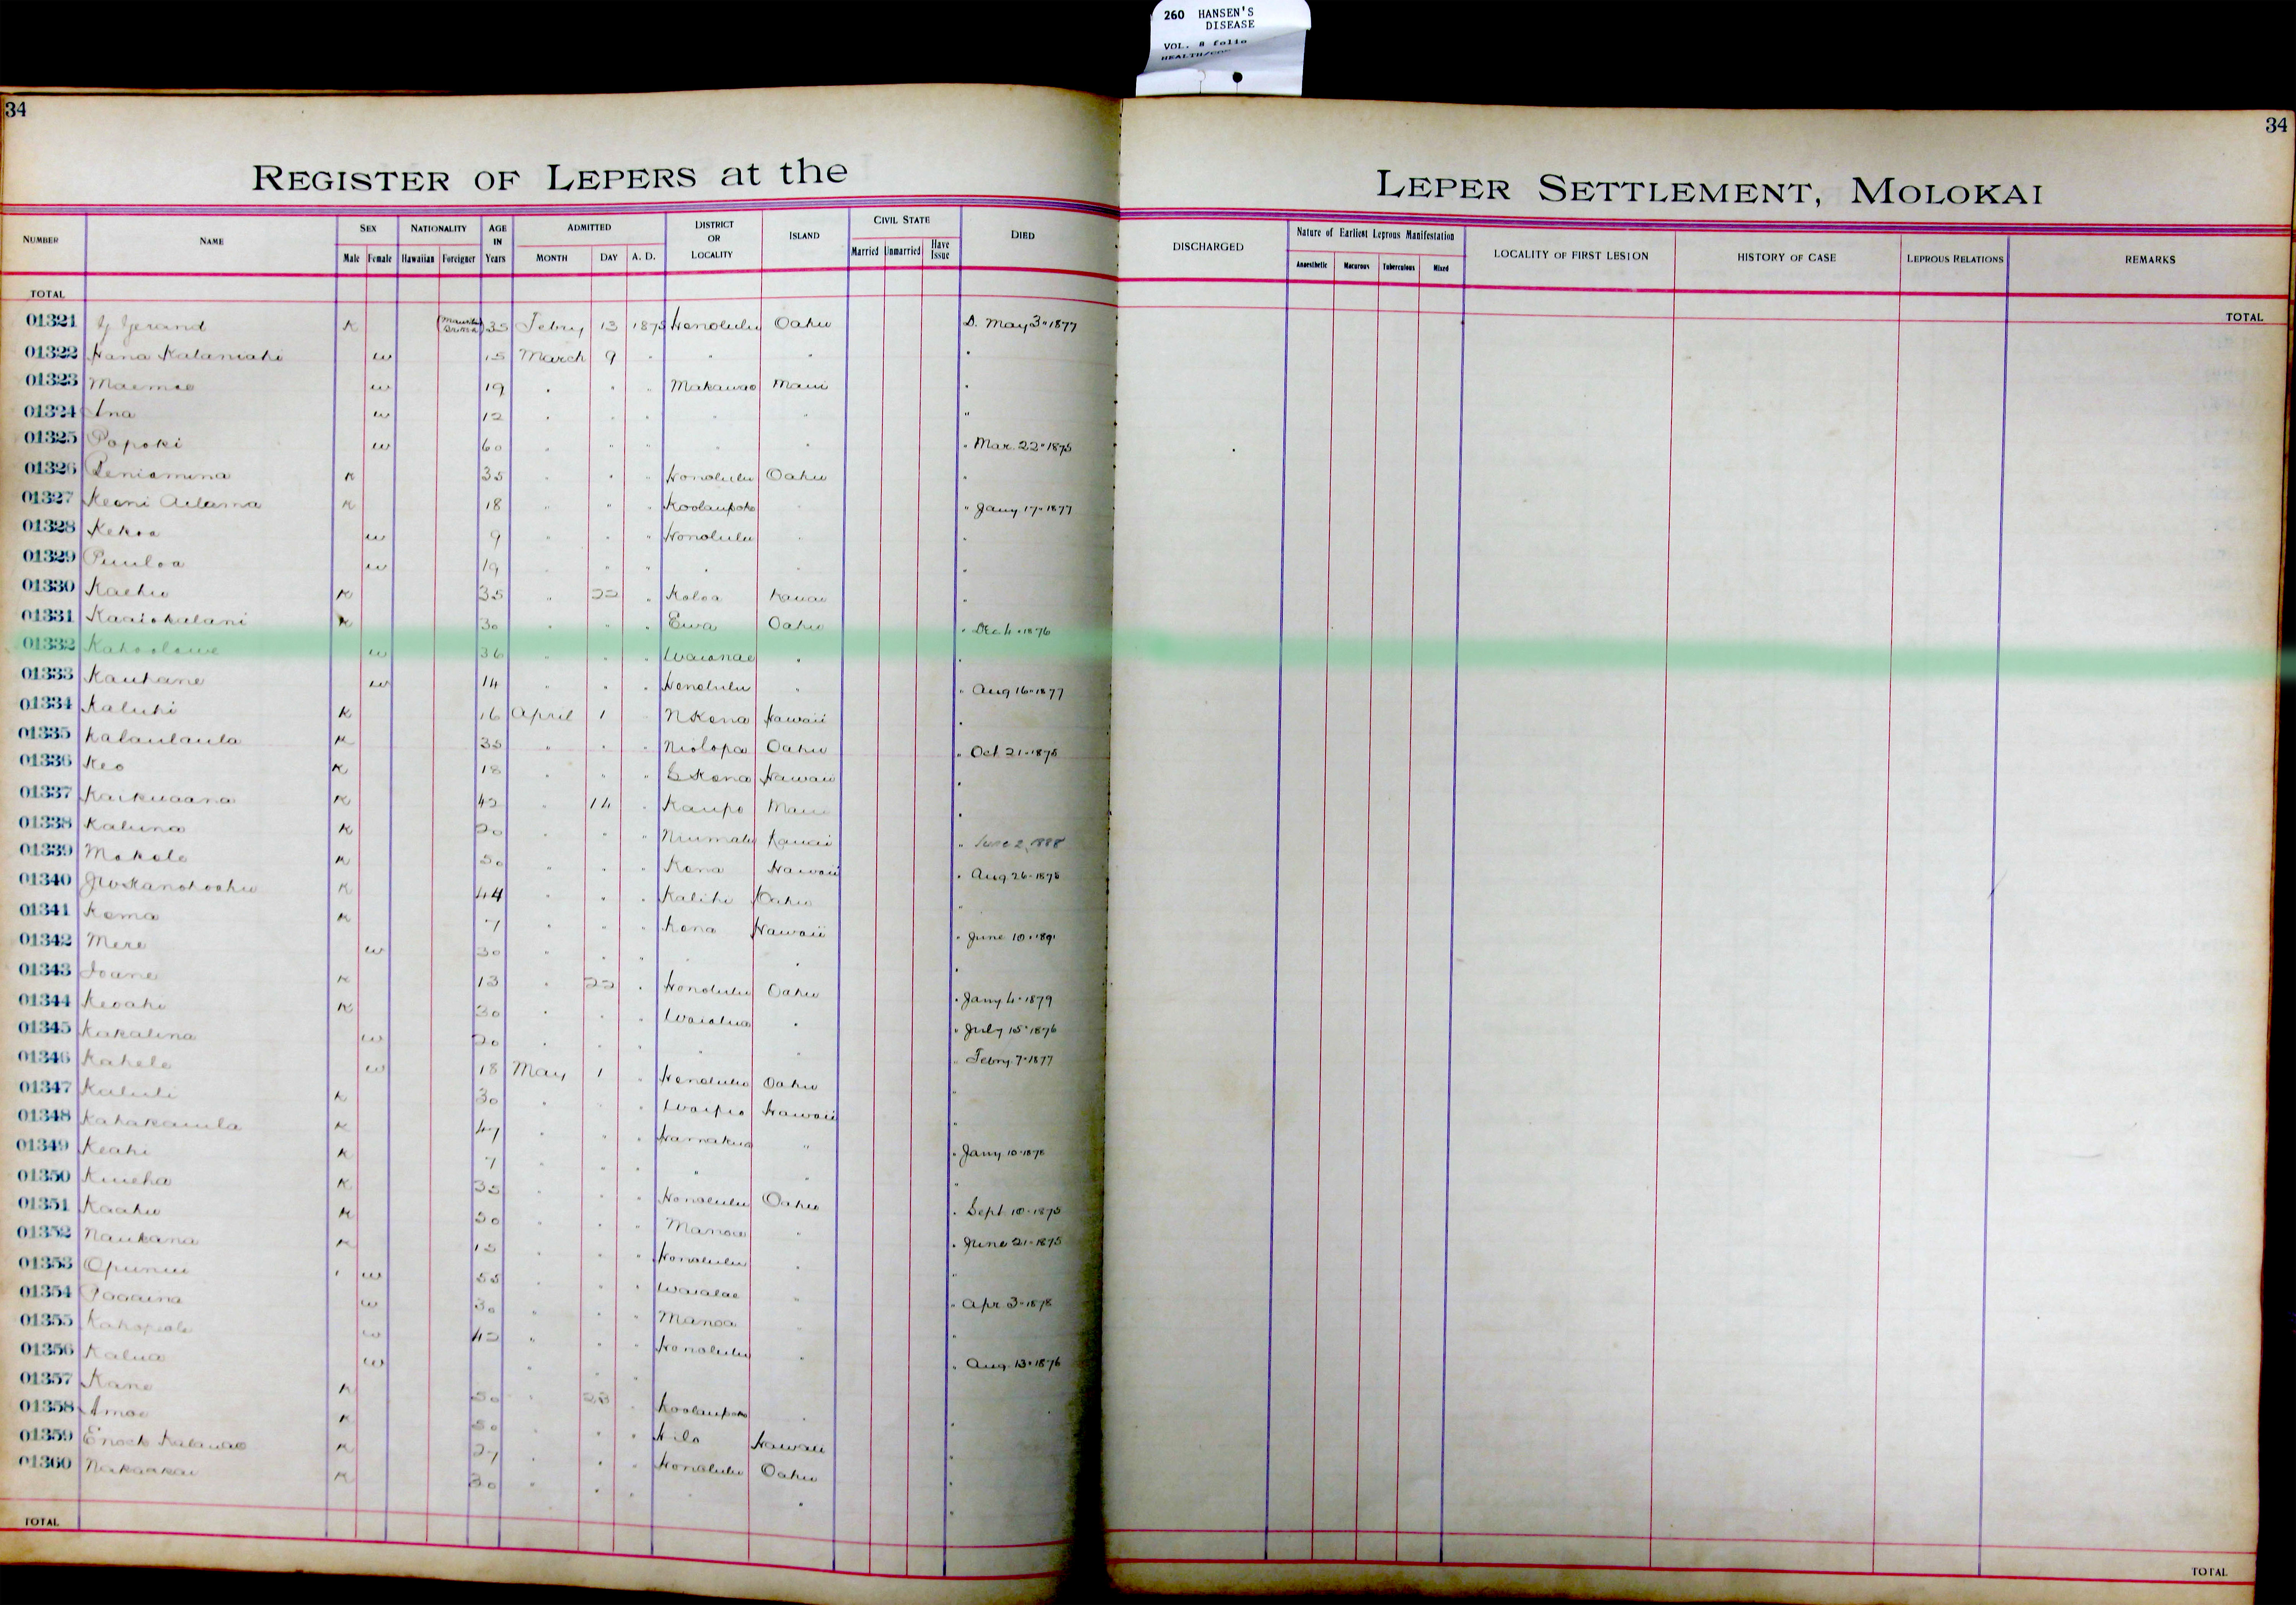 260 HANSEN'S
DISEASE
VOL. 8 folio
34
34
REGISTER OF LEPERS at the
LEPER SETTLEMENT, MOLOKAI
NUMBER NAME SEX NATIONALITY AGE IN Years ADMITTED DISTRICT OR LOCALITY ISLAND CIVIL STATE DIED
Male Female Hawaiian Foreigner MONTH DAY A. D. Married Unmarried Have Issue
DISCHARGED Nature of Earliest Leprous Manifestation LOCALITY OF FIRST LESION HISTORY OF CASE LEPROUS RELATIONS REMARKS
Anaesthetic Macurous Tuberculous Mixed
TOTAL
TOTAL
01321 Gerand K 35 Febry 13 1875 Honolulu Oahu D. May 3 · 1877
01322 Hana Kalaniahi w 15 March 9 " " "
01323 Maemae w 19 " " " Makawao Maui "
01324 Ana w 12 " " " " " "
01325 Popoki w 60 " " " " " " Mar. 22 · 1875
01326 Peniamina K 35 " " " Honolulu Oahu "
01327 Keoni Adama K 18 " " " Koolaupoko " " Jany 17 · 1877
01328 Kekoa w 9 " " " Honolulu " "
01329 Puuloa w 19 " " " " " "
01330 Kaehu K 35 " 22 " Koloa Kauai "
01331 Kaaiokalani K 30 " " " Ewa Oahu " Dec 4 · 1876
01332 Kahoolawe w 36 " " " Waianae " "
01333 Kauhane w 14 " " " Honolulu " " Aug 16 · 1877
01334 Kaluhi K 16 April 1 " N Kona Hawaii "
01335 Kalaulaula K 35 " " " Niolopa Oahu " Oct 21 · 1878
01336 Keo K 18 " " " S Kona Hawaii "
01337 Kaikuaana K 42 " 14 " Kaupo Maui "
01338 Kaluna K 20 " " " Niumalu Kauai " June 2, 1888
01339 Makole K 50 " " " Kona Hawaii " Aug 26 · 1878
01340 JW Kanohoahu K 44 " " " Kalihi Oahu "
01341 Kema K 7 " " " Kona Hawaii " June 10 · 1891
01342 Mere w 30 " " " " " "
01343 Ioane K 13 " 22 " Honolulu Oahu " Jany 4 · 1879
01344 Keoahi K 30 " " " Waialua " " July 15 · 1876
01345 Kakalina w 20 " " " " " " Febry. 7 · 1877
01346 Kahele w 18 May 1 " Honolulu Oahu "
01347 Kaluli K 30 " " " Waipio Hawaii "
01348 Kahakauila K 47 " " " Hamakua " " Jany 10 · 1878
01349 Keahi K 7 " " " " " "
01350 Kuieha K 35 " " " Honolulu Oahu " Sept 10 · 1875
01351 Kaahu K 50 " " " Manoa " " June 21 · 1875
01352 Naukana K 15 " " " Honolulu " "
01353 Opunui w 55 " " " Waialae " " Apr 3 · 1878
01354 Paaaina w 30 " " " Manoa " "
01355 Kahopale w 42 " " " Honolulu " " Aug. 13 · 1876
01356 Kalua w " " "
01357 Kane K 50 " 23 " Koolaupoko " "
01358 Amoe K 50 " " " Hilo Hawaii "
01359 Enoch Kalauao K 27 " " " Honolulu Oahu "
01360 Nakaakai K 30 " " " " " "
TOTAL
TOTAL